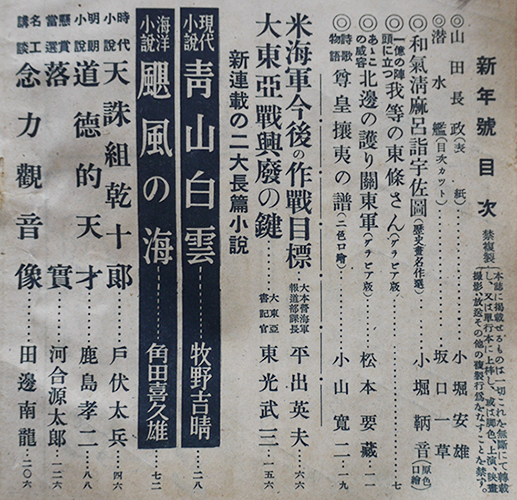 新年號目次
禁複製
本誌に掲載せるものは一切これを無斷にて轉載
し、又は單行本に上梓し、或は脚色、上演、映畫
撮影、放送その他の複製行爲をなすことを禁ず
◎山田長政（表紙）小堀安雄
◎潛水艦（目次カット）坂口一草
◎和氣淸麻呂詣宇佐圖（歷史畫名作選）小堀鞆音（原色口繪）
◎一億の陣頭に立つ我等の東條さん（グラビア版）一七
◎あゝこの威容北邊の護り關東軍（グラビア版）松本要藏一一
◎詩歌物語尊皇攘夷の譜（二色口繪）小山寬二一九
米海軍今後の作戰目標大本營海軍報道部課長平出英夫六六
大東亞戰興廢の鍵大東亞書記官東光武三一五六
新連載の二大長篇小說
現代小說靑山白雲牧野吉晴二八
海洋小說颶風の海角田喜久雄七二
時代小說天誅組乾十郞戶伏太兵四六
明朗小說道德的天才鹿島孝二八八
懸賞當選落實河合源太郞一二六
名工講談念力觀音像田邊南龍二〇六